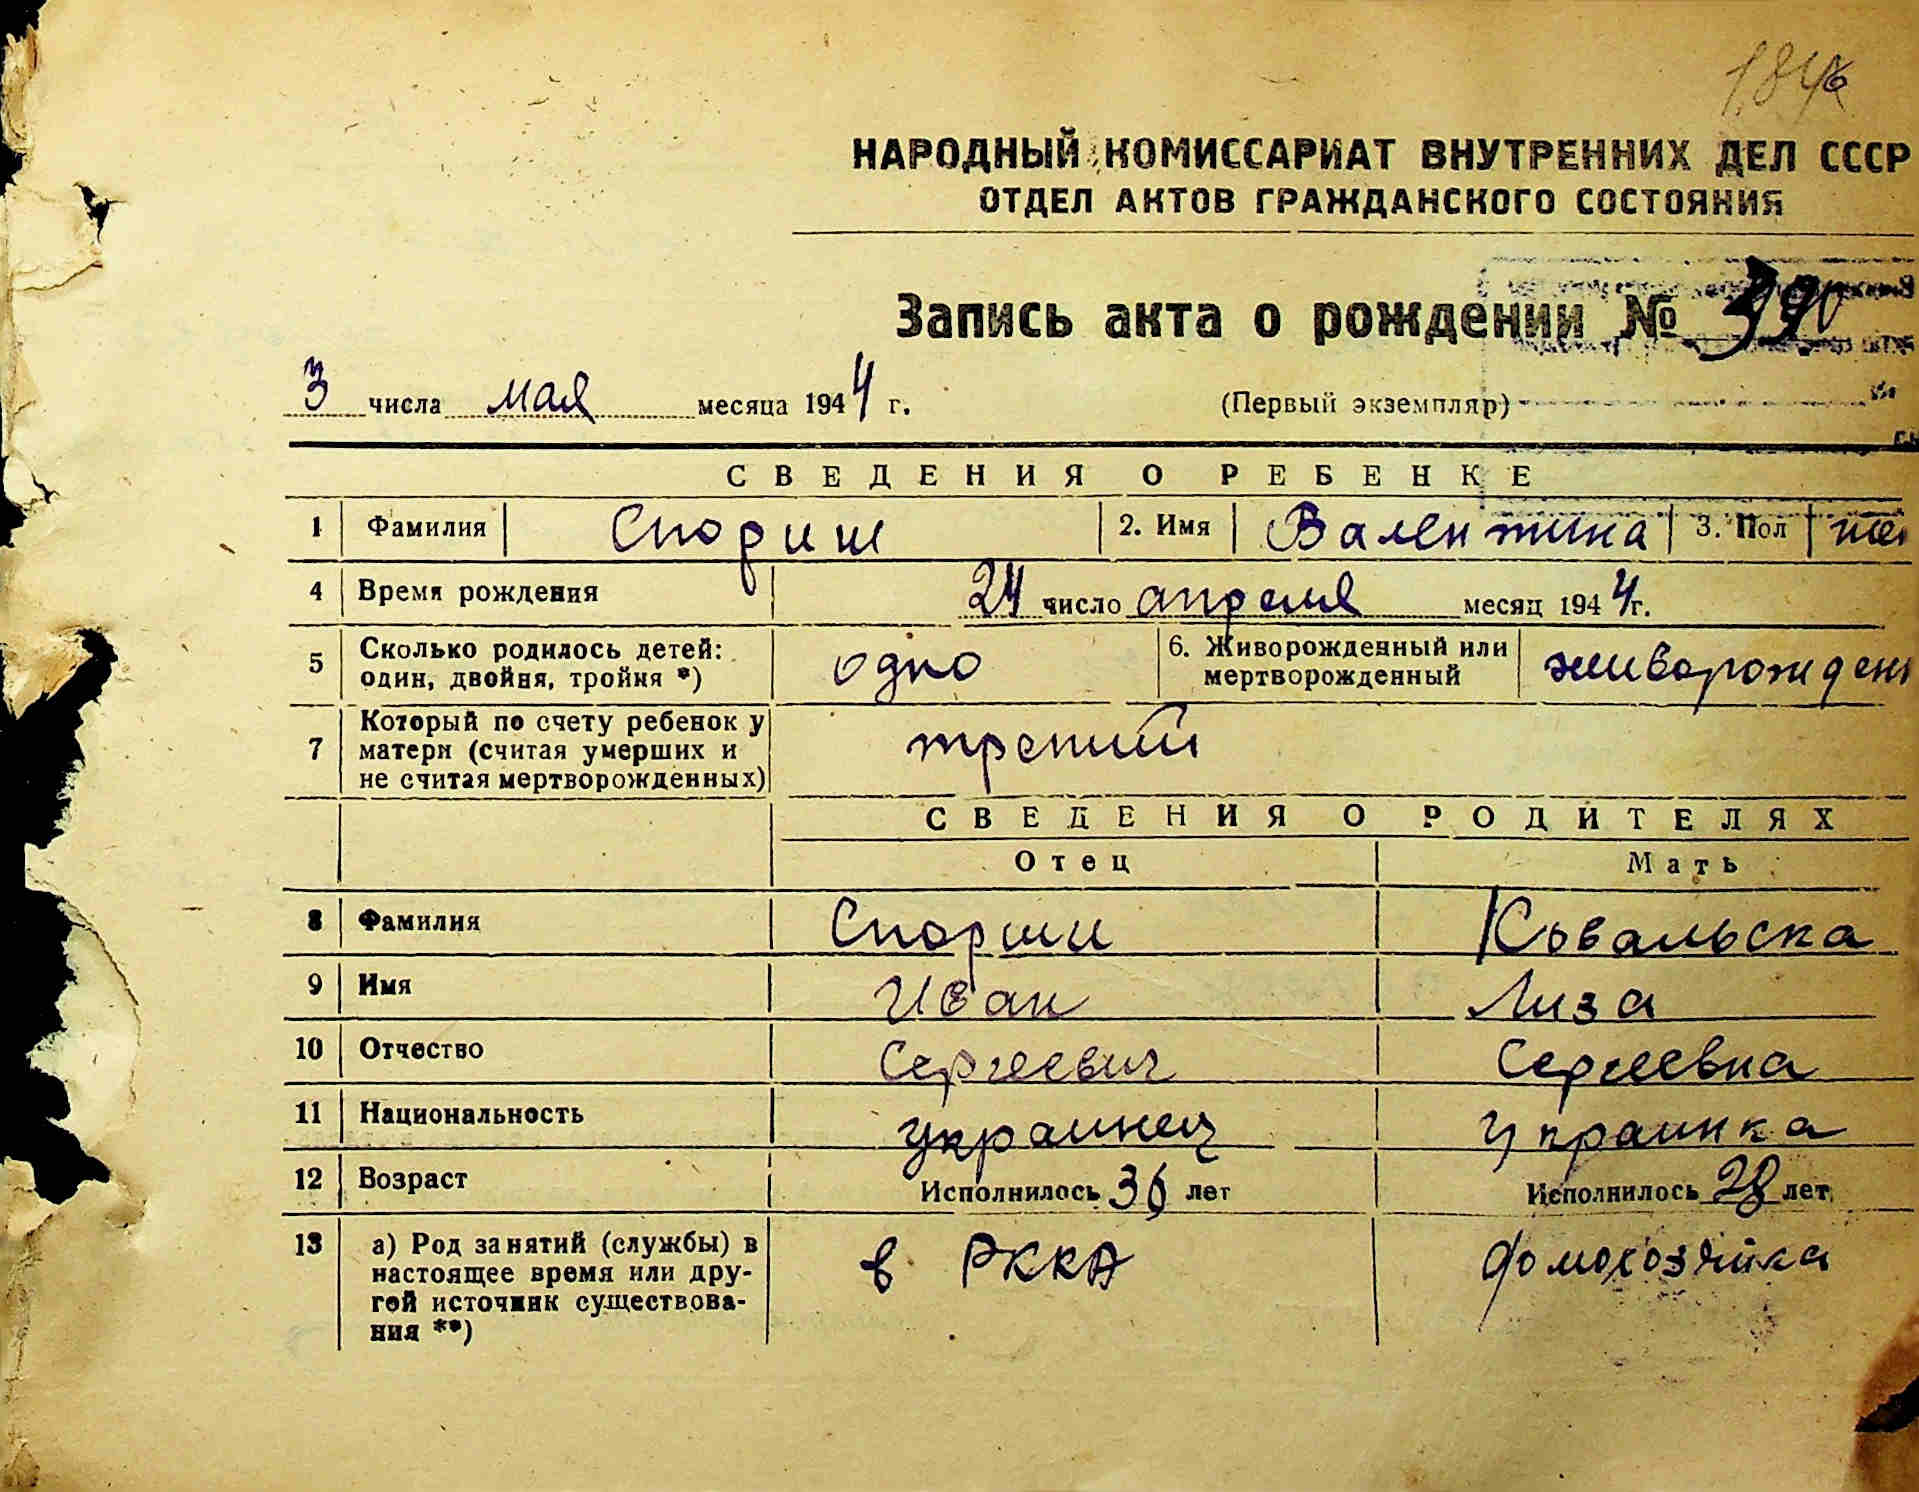 НАРОДНЫЙ КОМИССАРИАТ ВНУТРЕННИХ ДЕЛ СССР
ОТДЕЛ АКТОВ ГРАЖДАНСКОГО СОСТОЯНИЯ
Запись акта о рождении № 390
3 числа мая месяца 1944 г. (Первый экземпляр)
СВЕДЕНИЯ О РЕБЕНКЕ
1 Фамилия Спориш 2. Имя Валентина 3. Пол жен
4 Время рождения 24 число апреля месяц 1944 г.
5 Сколько родилось детей: один, двойня, тройня *) одно 6. Живорожденный или мертворожденный живорожден
7 Который по счету ребенок у матери (считая умерших и не считая мертворожденных) третий
СВЕДЕНИЯ О РОДИТЕЛЯХ
Отец Мать
8 Фамилия Спориш Ковальска
9 Имя Иван Лиза
10 Отчество Сергеевич Сергеевна
11 Национальность украинец украинка
12 Возраст Исполнилось 36 лет Исполнилось 28 лет
13 а) Род занятий (службы) в настоящее время или другой источник существования **) в РККА домохозяйка